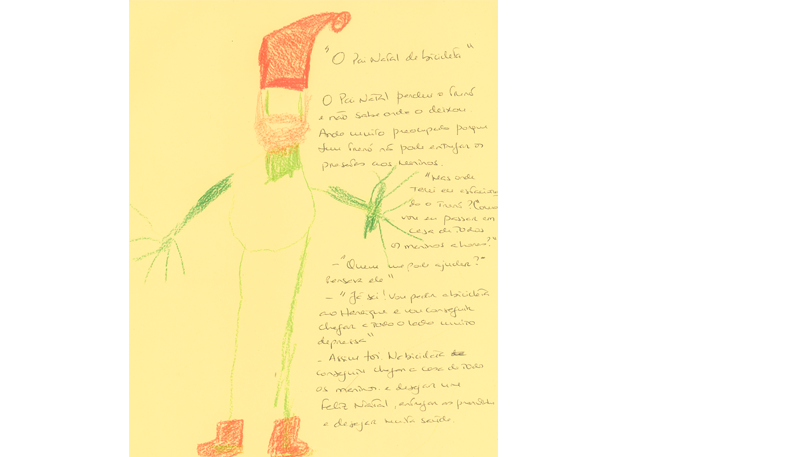 "O Pai Natal de bicicleta"
O Pai Natal perdeu o trenó
e não sabe onde o deixou.
Anda muito preocupado porque
sem trenó não pode entregar os
presentes aos meninos.
"Mas onde
terei eu
o Trenó? Como
vou eu passar em
casa de todos
os meninos a horas?"
- "Quem me pode ajudar?"
Pensava ele"
- "Já sei! Vou pedir a bicicleta
ao Henrique e vou conseguir
chegar a todo o lado muito
depressa"
- Assim foi. Na bicicleta
conseguiu chegar a casa de todos
os meninos e desejar um
Feliz Natal, entregar os presentes
e desejar muita saúde.